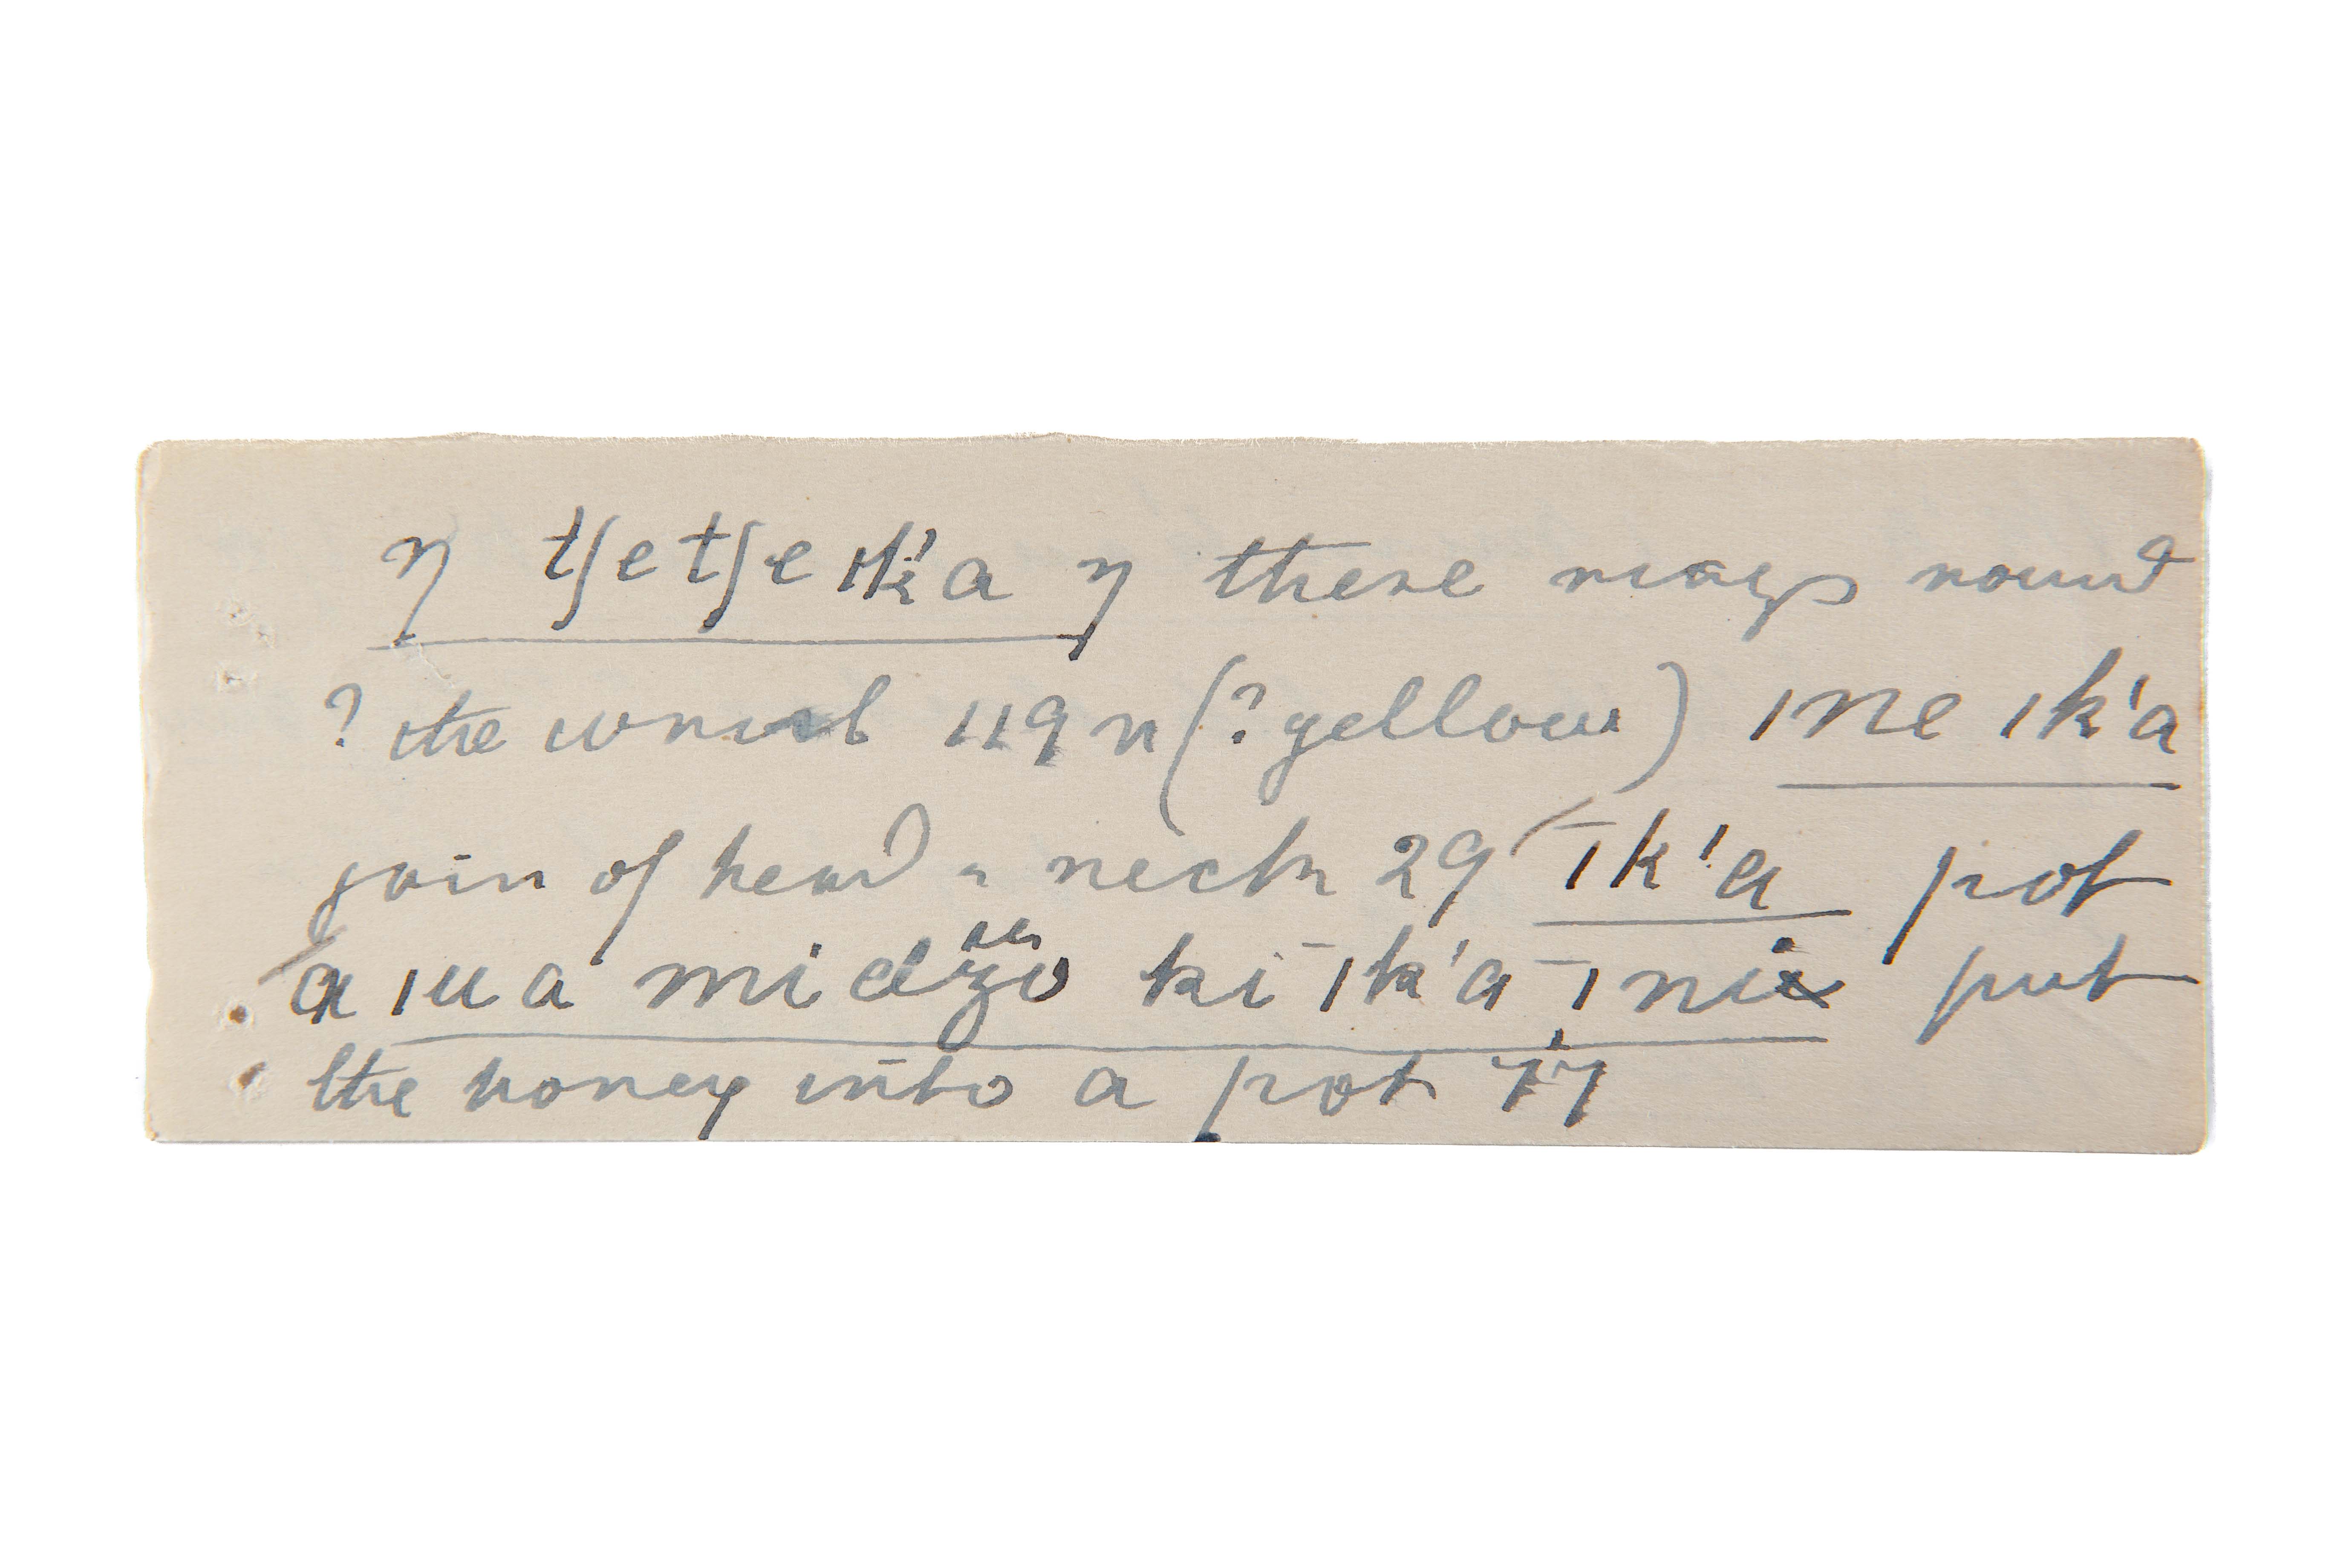 ŋ tʃetʃeık'a ŋ these rings round
? the wrist 119 n (? yellow) ıne ık'a
join of head " neck 29  īk'a pot
a ıua midžo ki īk'a īni put
the honey into a pot 77